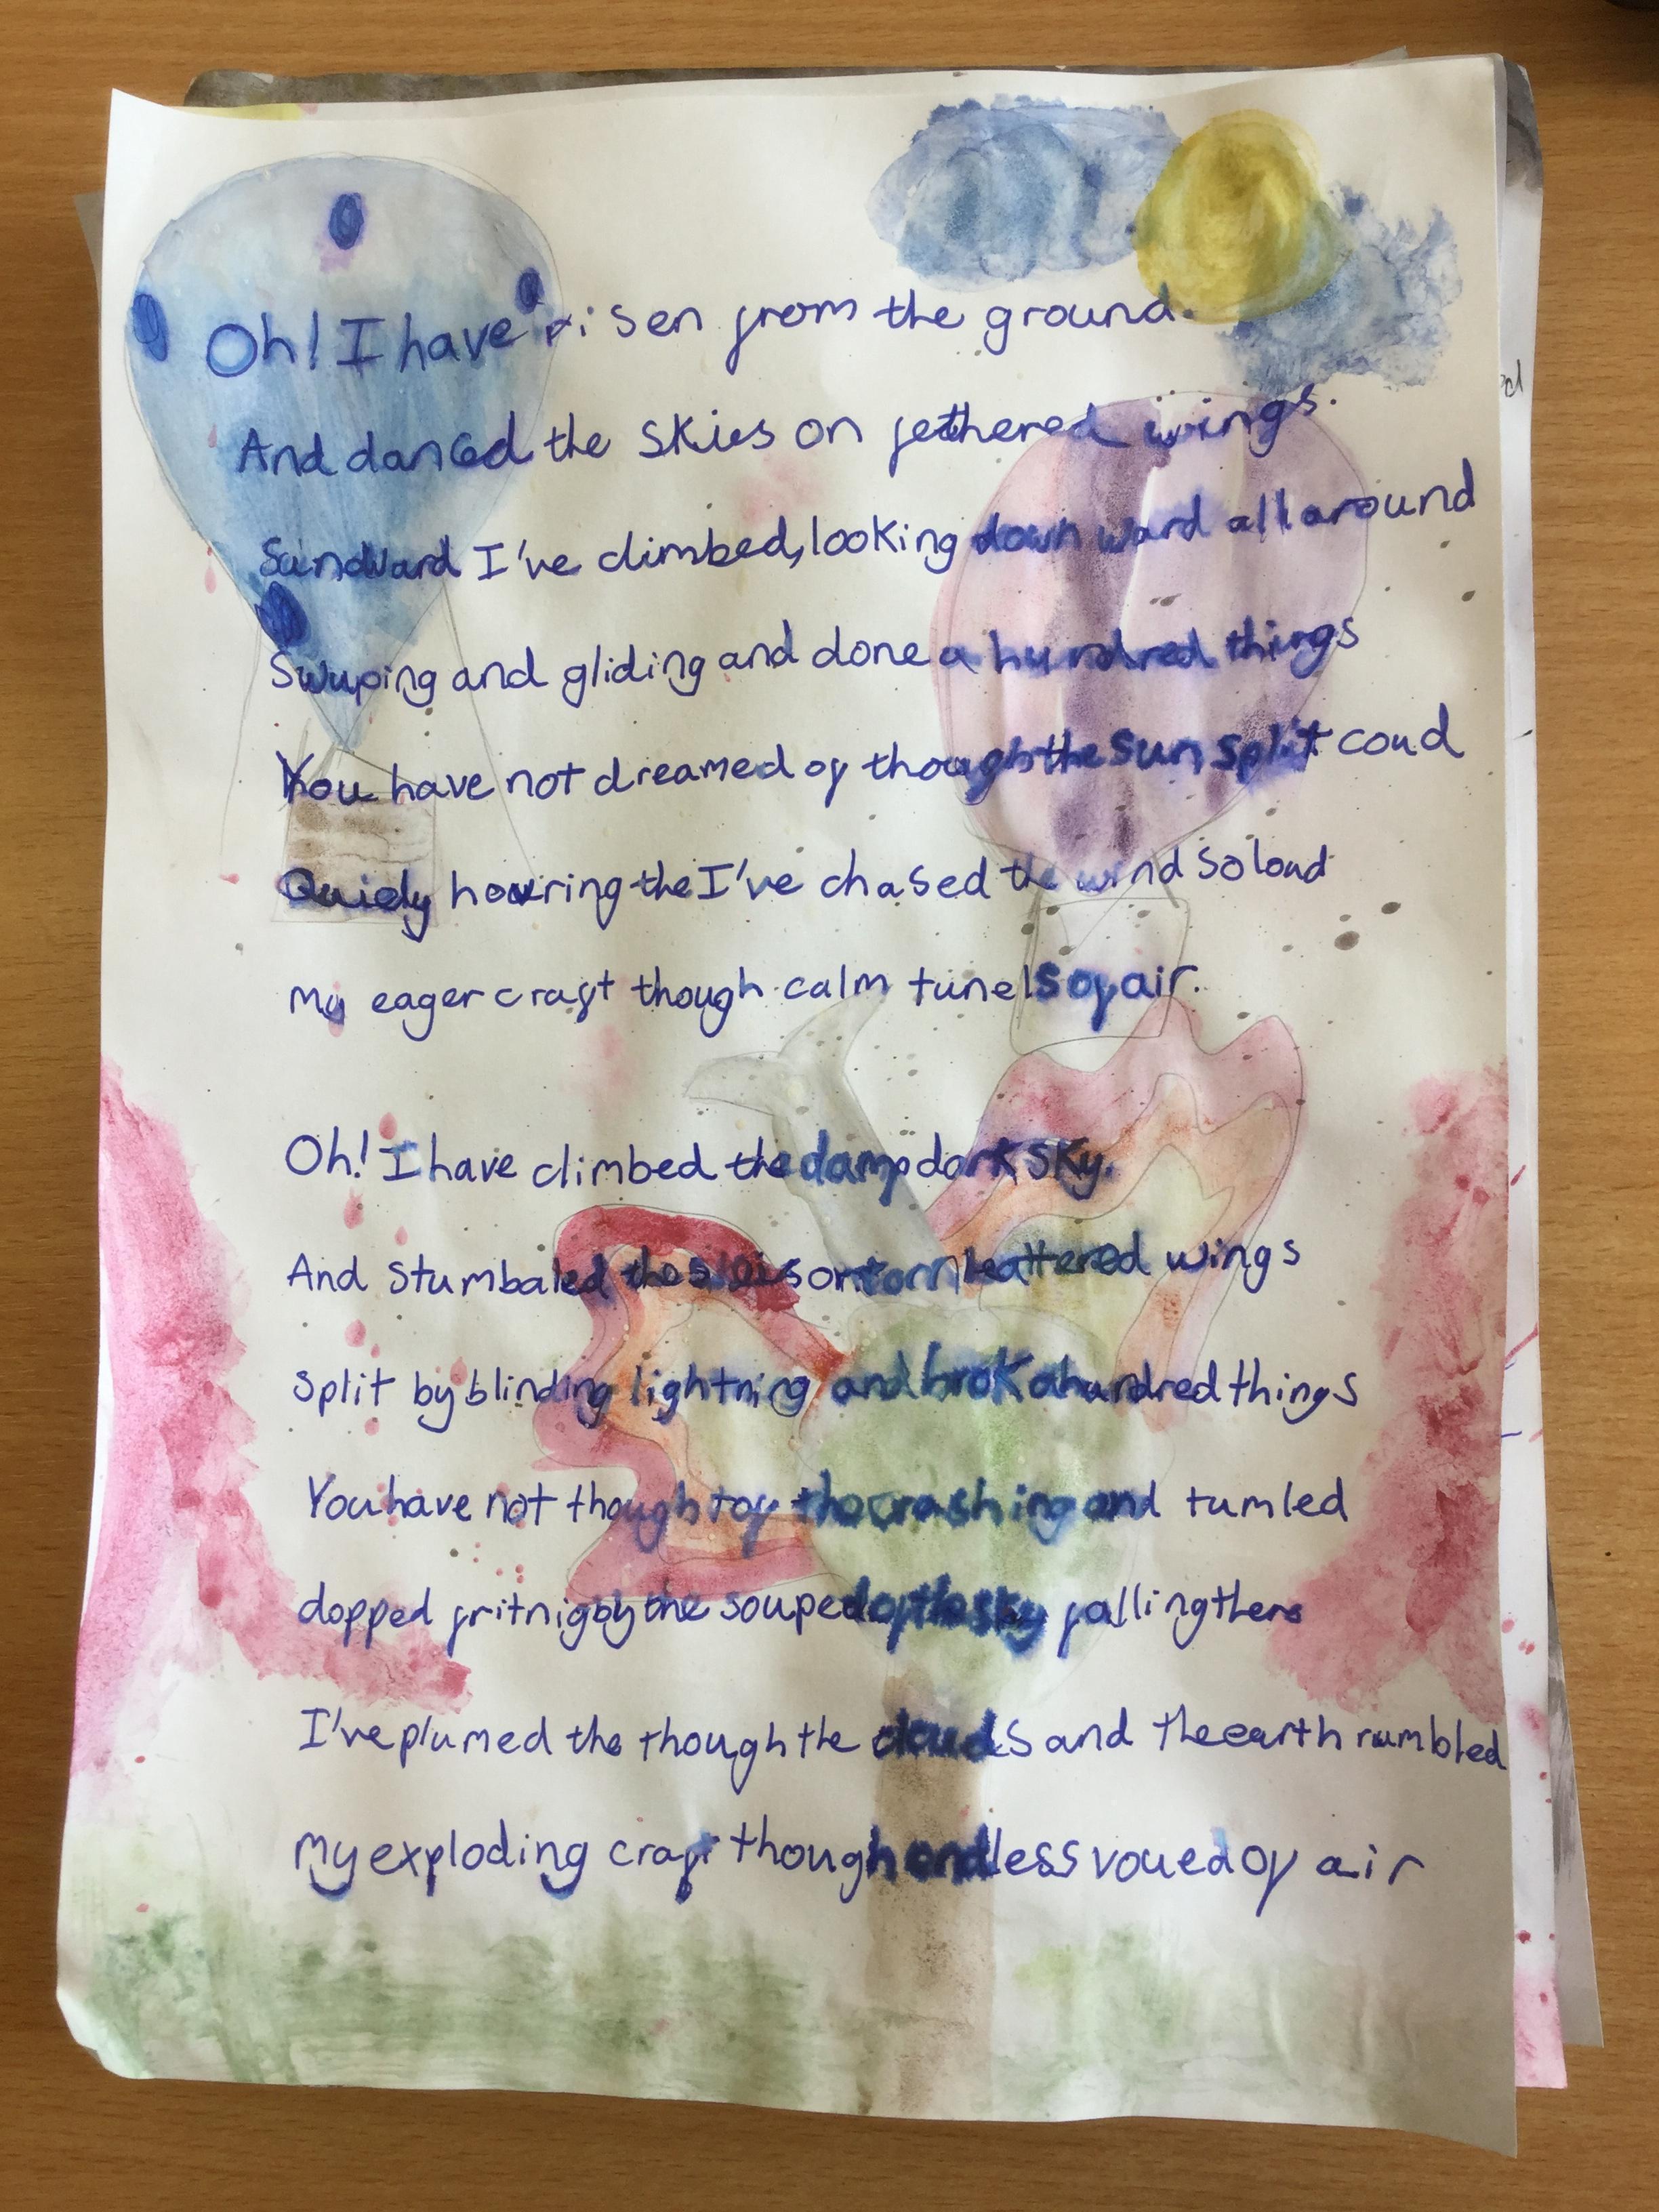 Oh! I have risen from the ground.
And danced the skies on fethered wings.
Sunward I've climbed, looking down ward all around
Swuping and gliding and done a hundred things
You have not dreamed of though the sun split coud
Quiely hovring the I've chased the wind so loud
my eager craft though calm tunels of air.
Oh! I have climbed the damp dark sky.
And stumbaled the skis on torn leattered wings
split by blinding lightning and brok a hundred things
You have not thought of the crashing and tumled
dopped fritnig by the souped of the sky falling there
I've plumed the though the clouds and the earth rumbled
my exploding craft though endless voued of air